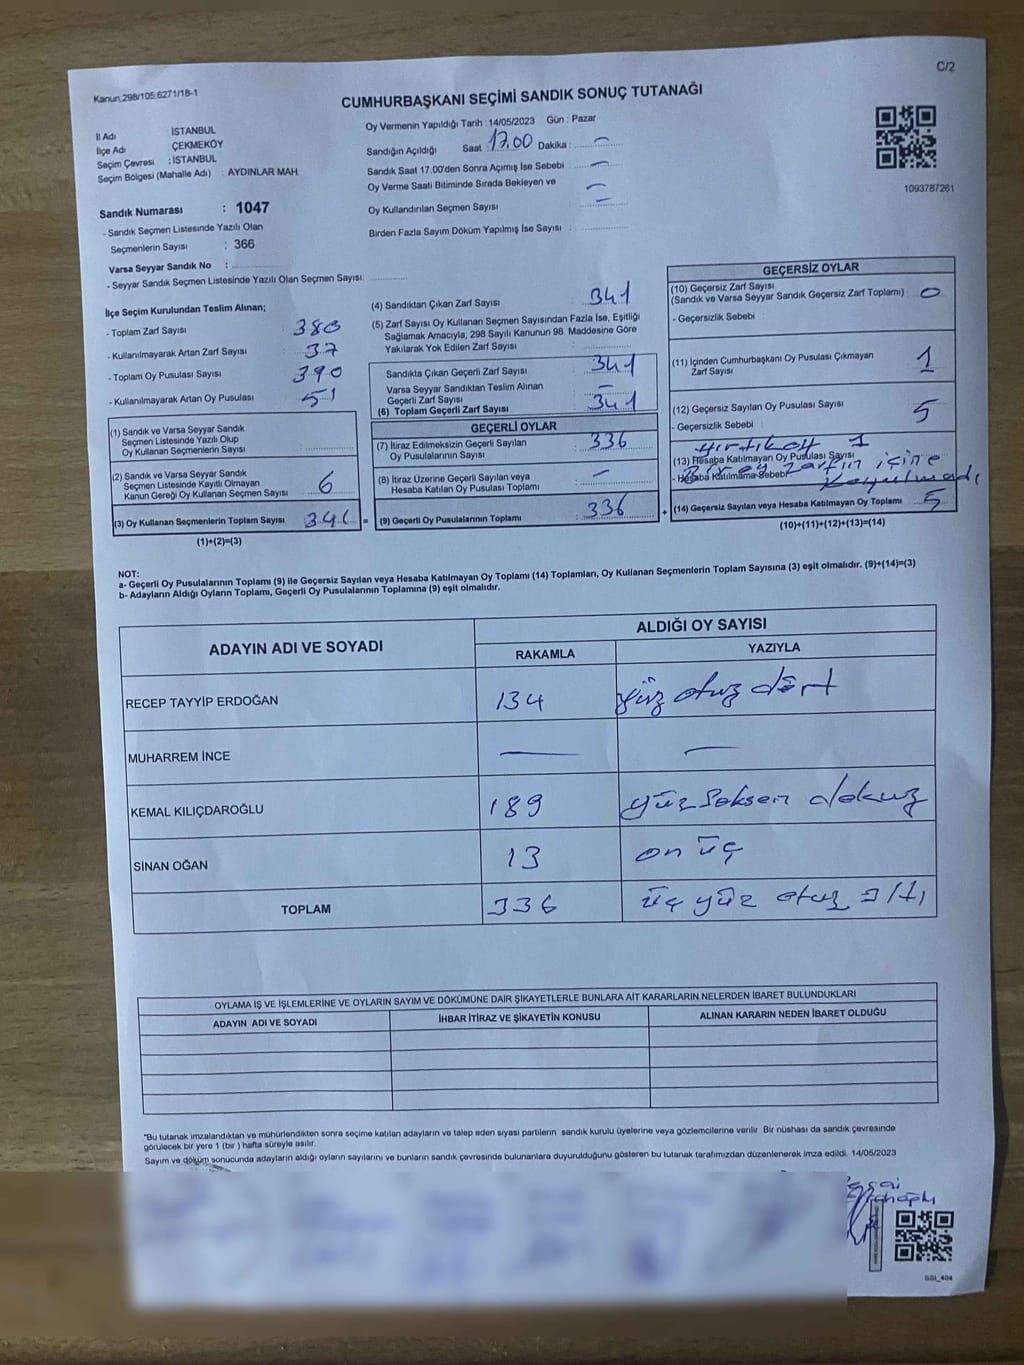 C/2
Kanun;298/105;6271/18-1
CUMHURBAŞKANI SEÇİMİ SANDIK SONUÇ TUTANAĞI
İl Adı İSTANBUL
İlçe Adı ÇEKMEKÖY
Seçim Çevresi : İSTANBUL
Seçim Bölgesi (Mahalle Adı) : AYDINLAR MAH.
Sandık Numarası : 1047
- Sandık Seçmen Listesinde Yazılı Olan
Seçmenlerin Sayısı : 366
Varsa Seyyar Sandık No :
- Seyyar Sandık Seçmen Listesinde Yazılı Olan Seçmen Sayısı:
Oy Vermenin Yapıldığı Tarih : 14/05/2023 Gün : Pazar
Sandığın Açıldığı Saat : 17.00 Dakika : —
Sandık Saat 17.00'den Sonra Açımış İse Sebebi —
Oy Verme Saati Bitiminde Sırada Bekleyen ve —
Oy Kullandırılan Seçmen Sayısı —
Birden Fazla Sayım Döküm Yapılmış İse Sayısı :
1093787261
İlçe Seçim Kurulundan Teslim Alınan;
- Toplam Zarf Sayısı 380
- Kullanılmayarak Artan Zarf Sayısı 37
- Toplam Oy Pusulası Sayısı 390
- Kullanılmayarak Artan Oy Pusulası 51
(1) Sandık ve Varsa Seyyar Sandık
Seçmen Listesinde Yazılı Olup
Oy Kullanan Seçmenlerin Sayısı
(2) Sandık ve Varsa Seyyar Sandık
Seçmen Listesinde Kayıtlı Olmayan
Kanun Gereği Oy Kullanan Seçmen Sayısı 6
(3) Oy Kullanan Seçmenlerin Toplam Sayısı 341 =
(1)+(2)=(3)
(4) Sandıktan Çıkan Zarf Sayısı 341
(5) Zarf Sayısı Oy Kullanan Seçmen Sayısından Fazla İse, Eşitliği
Sağlamak Amacıyla; 298 Sayılı Kanunun 98. Maddesine Göre
Yakılarak Yok Edilen Zarf Sayısı
Sandıkta Çıkan Geçerli Zarf Sayısı 341
Varsa Seyyar Sandıktan Teslim Alınan
Geçerli Zarf Sayısı —
(6) Toplam Geçerli Zarf Sayısı 341
GEÇERLİ OYLAR
(7) İtiraz Edilmeksizin Geçerli Sayılan
Oy Pusulalarının Sayısı 336
(8) İtiraz Üzerine Geçerli Sayılan veya
Hesaba Katılan Oy Pusulası Toplamı —
(9) Geçerli Oy Pusulalarının Toplamı : 336 +
GEÇERSİZ OYLAR
(10) Geçersiz Zarf Sayısı
(Sandık ve Varsa Seyyar Sandık Geçersiz Zarf Toplamı) 0
- Geçersizlik Sebebi :
(11) İçinden Cumhurbaşkanı Oy Pusulası Çıkmayan
Zarf Sayısı 1
(12) Geçersiz Sayılan Oy Pusulası Sayısı 5
- Geçersizlik Sebebi :
Yırtık oy 1
(13) Hesaba Katılmayan Oy Pusulası Sayısı
- Hesaba Katılmama Sebebi:
Bir oy zarfın içine
koyulmadı
(14) Geçersiz Sayılan veya Hesaba Katılmayan Oy Toplamı 5
(10)+(11)+(12)+(13)=(14)
NOT:
a- Geçerli Oy Pusulalarının Toplamı (9) ile Geçersiz Sayılan veya Hesaba Katılmayan Oy Toplamı (14) Toplamları, Oy Kullanan Seçmenlerin Toplam Sayısına (3) eşit olmalıdır. (9)+(14)=(3)
b- Adayların Aldığı Oyların Toplamı, Geçerli Oy Pusulalarının Toplamına (9) eşit olmalıdır.
ADAYIN ADI VE SOYADI
ALDIĞI OY SAYISI
RAKAMLA YAZIYLA
RECEP TAYYİP ERDOĞAN 134 yüz otuz dört
MUHARREM İNCE — —
KEMAL KILIÇDAROĞLU 189 yüz seksen dokuz
SİNAN OĞAN 13 on üç
TOPLAM 336 üç yüz otuz altı
OYLAMA İŞ VE İŞLEMLERİNE VE OYLARIN SAYIM VE DÖKÜMÜNE DAİR ŞİKAYETLERLE BUNLARA AİT KARARLARIN NELERDEN İBARET BULUNDUKLARI
ADAYIN ADI VE SOYADI İHBAR İTİRAZ VE ŞİKAYETİN KONUSU ALINAN KARARIN NEDEN İBARET OLDUĞU
*Bu tutanak imzalandıktan ve mühürlendikten sonra seçime katılan adayların ve talep eden siyasi partilerin sandık kurulu üyelerine veya gözlemcilerine verilir. Bir nüshası da sandık çevresinde
görülecek bir yere 1 (bir ) hafta süreyle asılır.
Sayım ve döküm sonucunda adayların aldığı oyların sayılarını ve bunların sandık çevresinde bulunanlara duyurulduğunu gösteren bu tutanak tarafımızdan düzenlenerek imza edildi. 14/05/2023